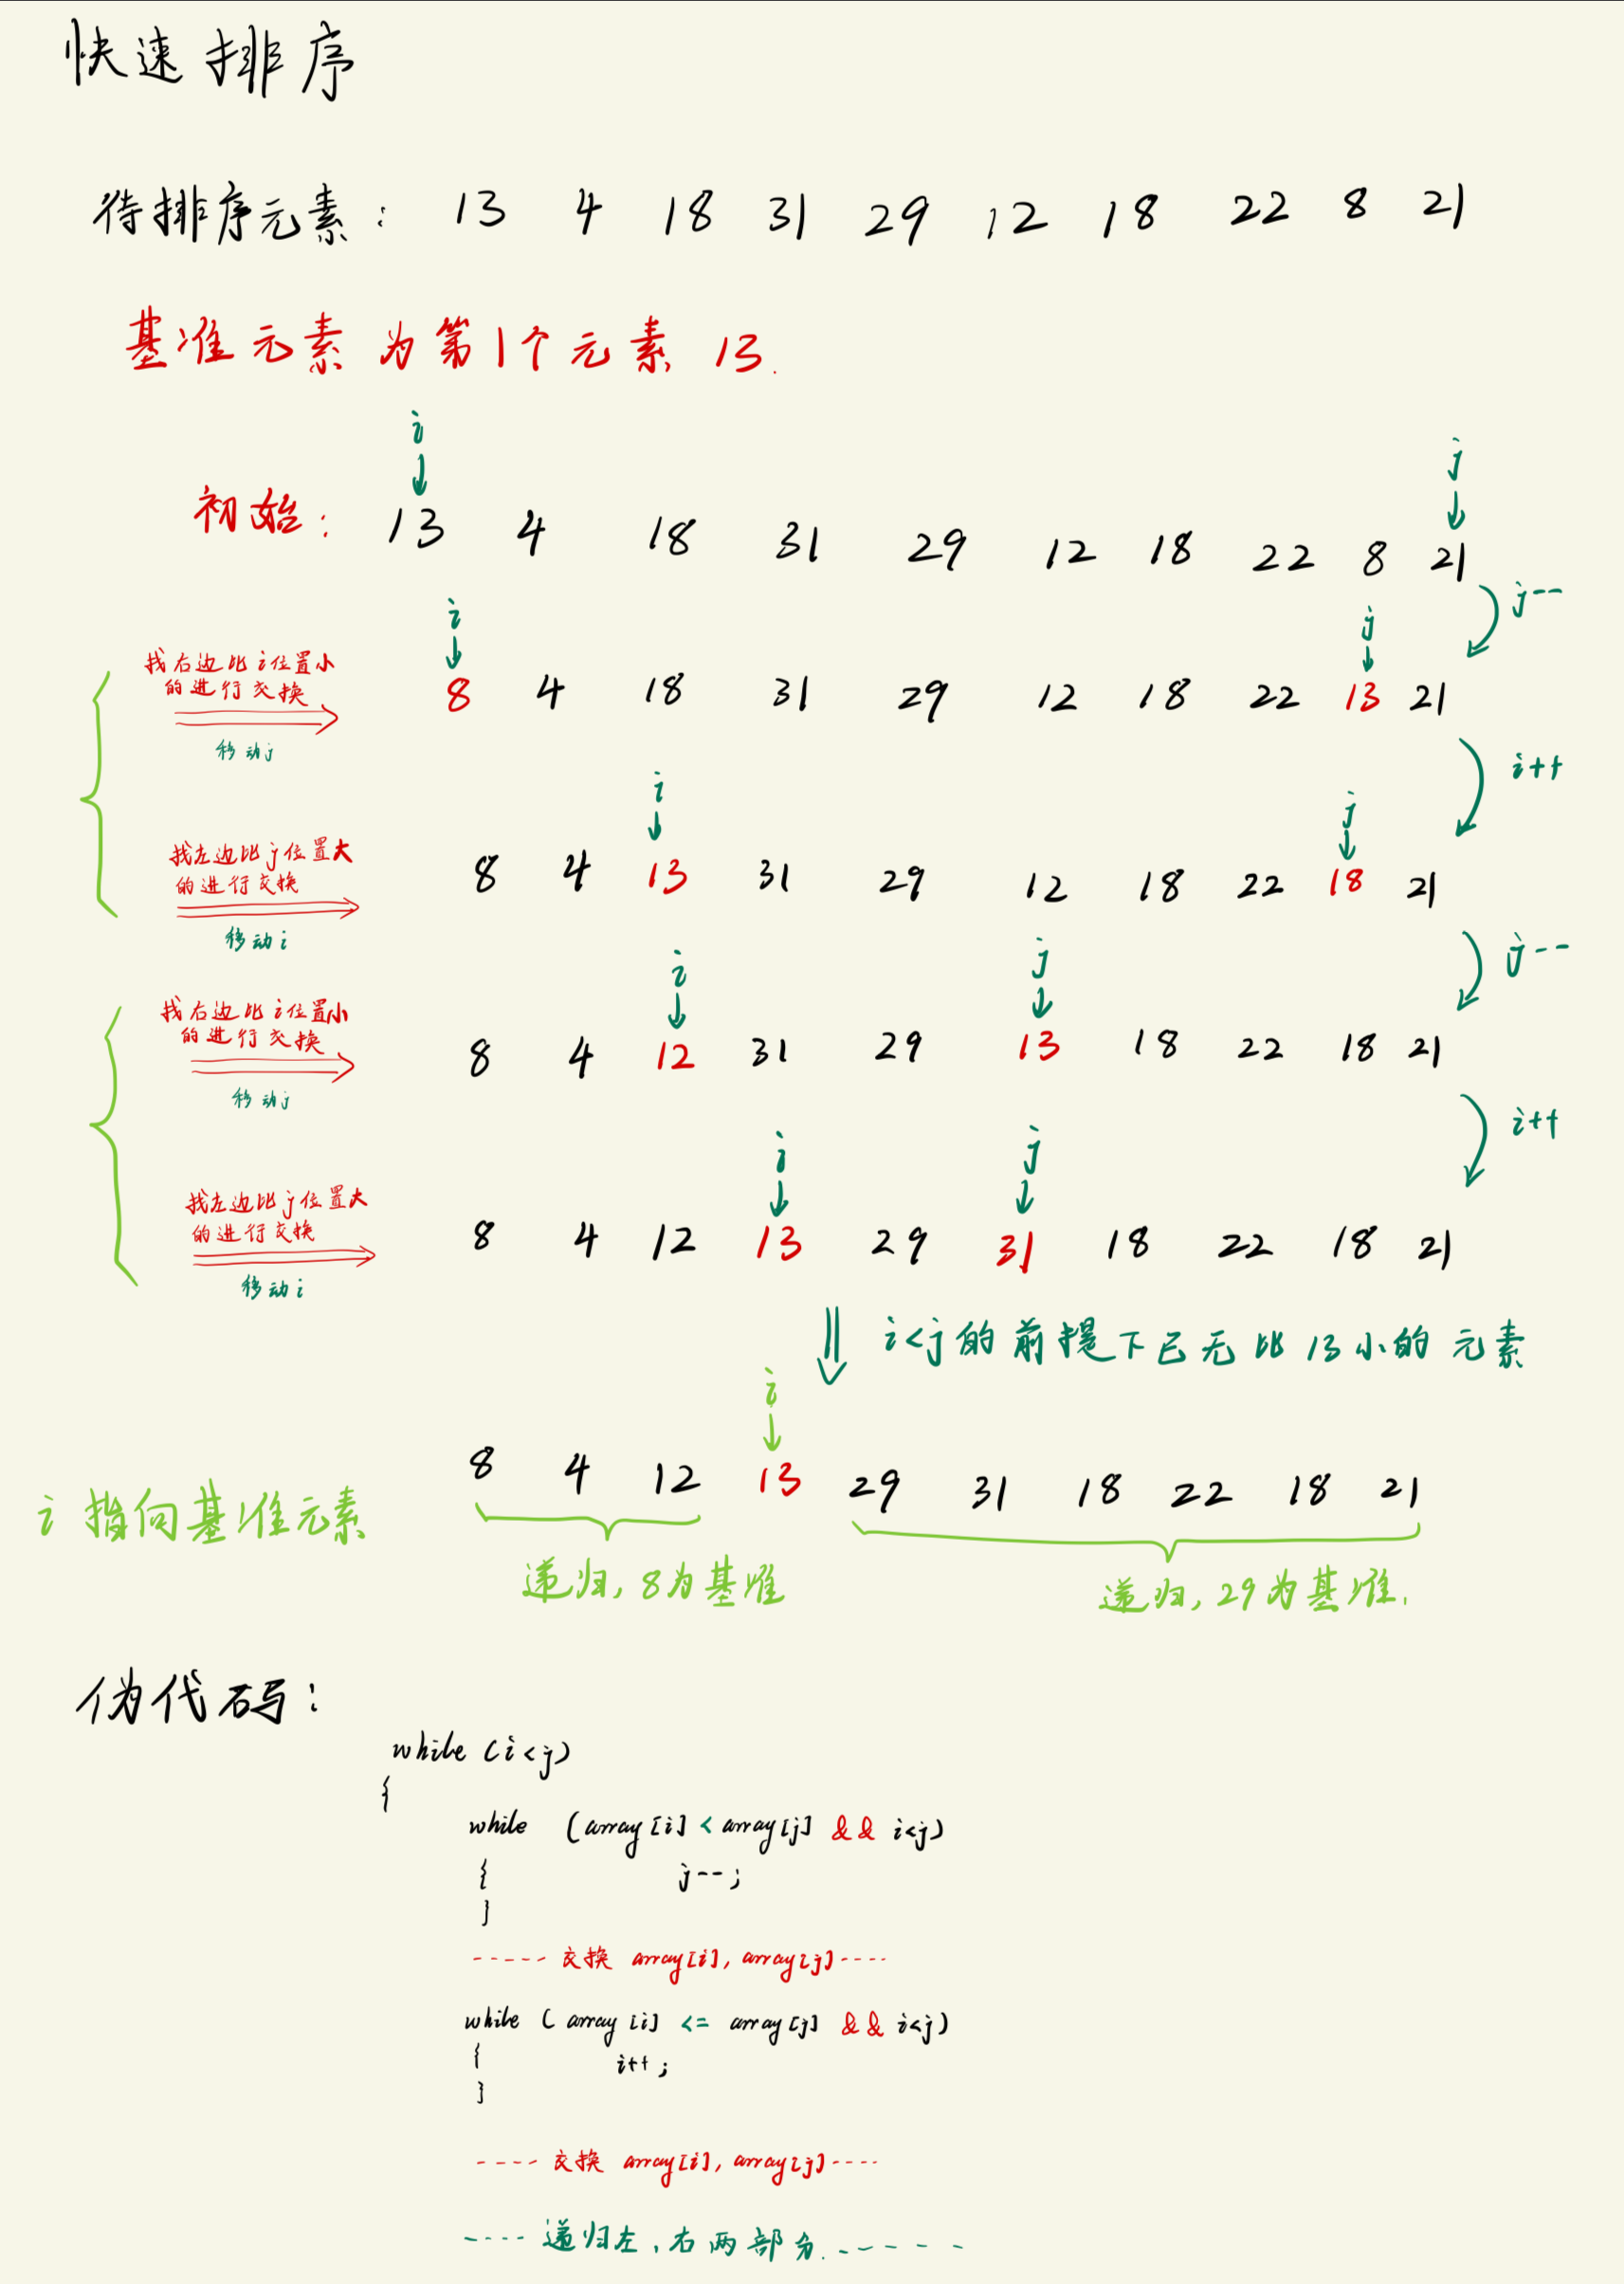 快速排序
待排序元素: 13 4 18 31 29 12 18 22 8 21
基准元素为第1个元素 13.
i j
初始: 13 4 18 31 29 12 18 22 8 21
j--
i j
找右边比i位置小
的进行交换
8 4 18 31 29 12 18 22 13 21
移动j
i++
i j
找左边比j位置大
的进行交换
8 4 13 31 29 12 18 22 18 21
移动i
j--
i j
找右边比i位置小
的进行交换
8 4 12 31 29 13 18 22 18 21
移动j
i++
i j
找左边比j位置大
的进行交换
8 4 12 13 29 31 18 22 18 21
移动i
i<j的前提下已无比13小的元素
i
8 4 12 13 29 31 18 22 18 21
i指向基准元素
递归, 8为基准
递归, 29为基准.
伪代码:
while (i<j)
{
while (array[i] < array[j] && i<j)
{ j--;
}
----- 交换 array[i], array[j] ----
while ( array[i] <= array[j] && i<j)
{ i++;
}
---- 交换 array[i], array[j] ----
---- 递归左、右两部分. ------